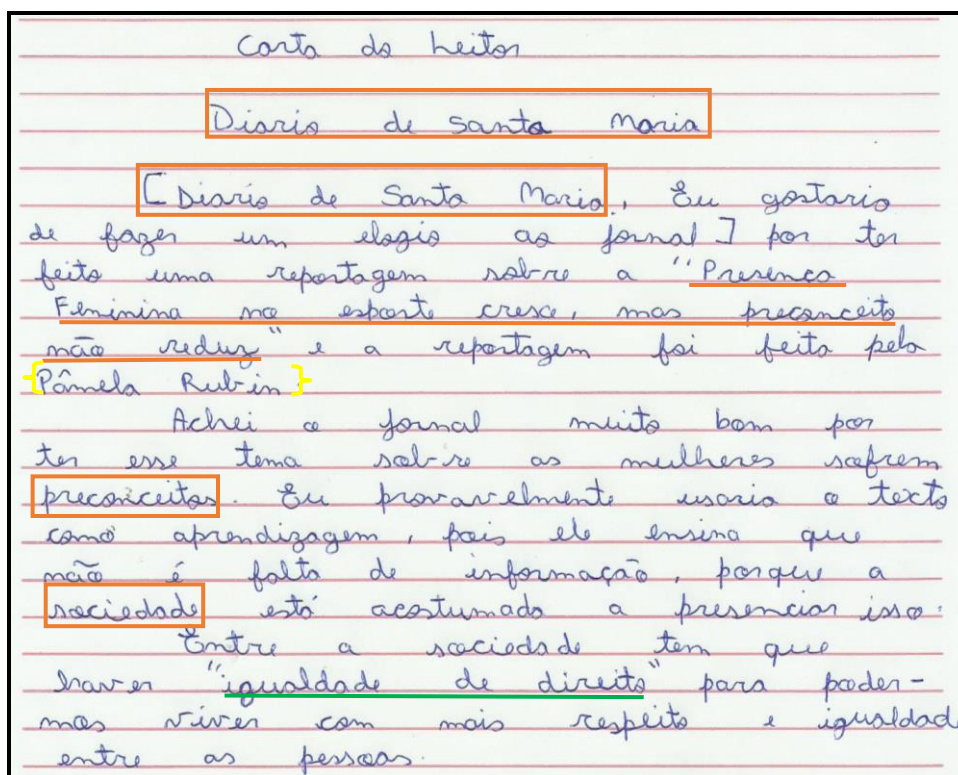 Carta do Leitor
Diario de Santa Maria
[Diario de Santa Maria, Eu gostaria
de fazer um elogio ao jornal] por ter
feito uma reportagem sobre a "Presença
Feminina no esporte cresce, mas preconceito
não reduz" e a reportagem foi feita pela
{Pâmela Rubin}
Achei o jornal muito bom por
ter esse tema sobre as mulheres sofrem
preconceitos. Eu provavelmente usaria o texto
como aprendizagem, pois ele ensina que
não é falta de informação, porque a
sociedade está acostumada a presenciar isso.
Entre a sociedade tem que
haver "igualdade de direito" para poder-
mos viver com mais respeito e igualdade
entre as pessoas.